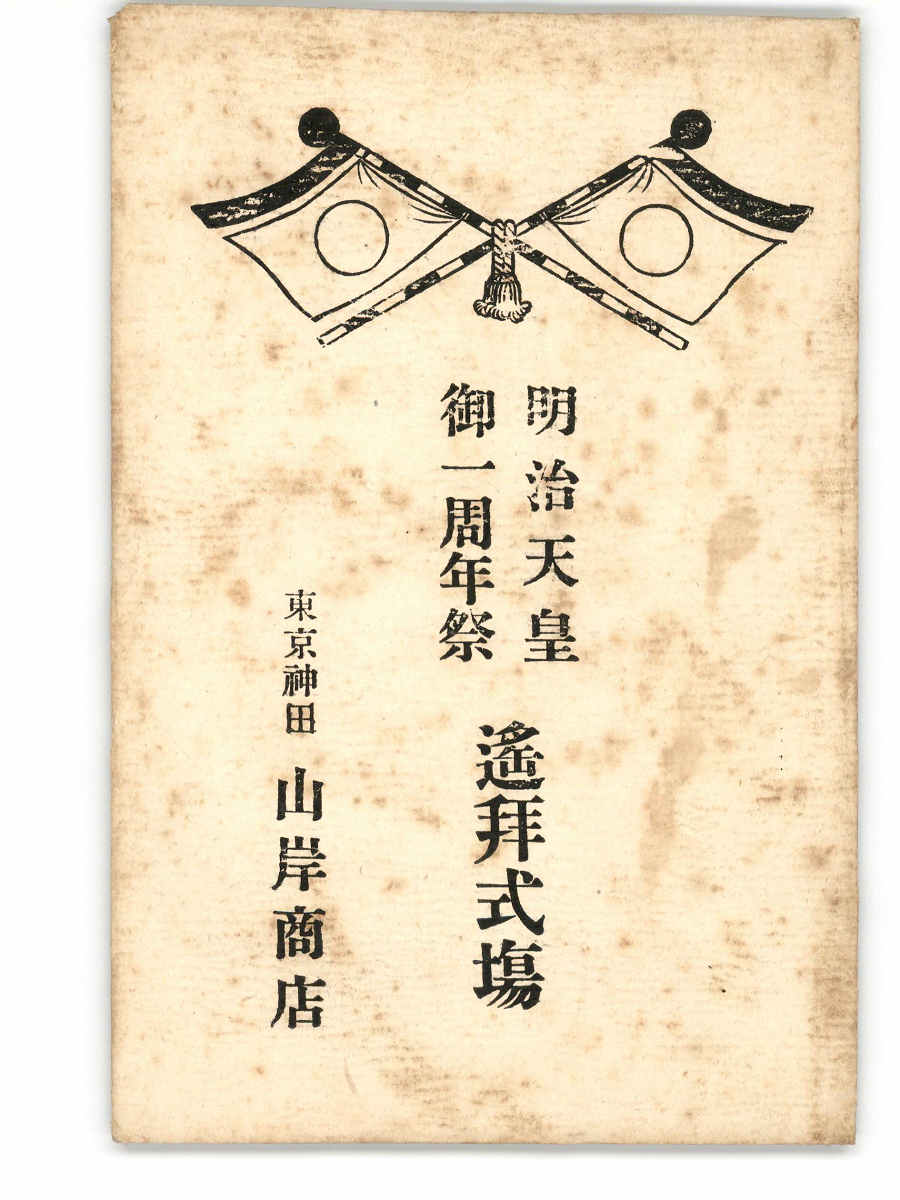 明治天皇
御一周年祭
遙拜式塲
東京神田 山岸商店